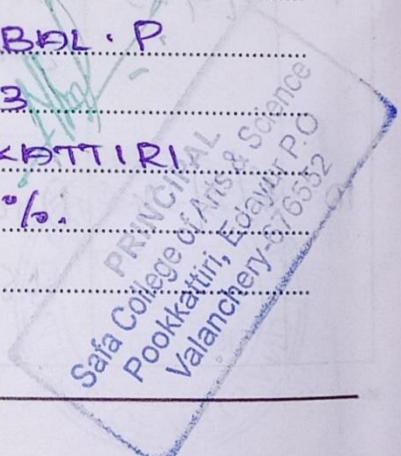 BAL. P
3
KATTIRI
%.
PRINCIPAL
Safa College of Arts & Science
Pookkattiri, Edayur P.O
Valanchery-676552